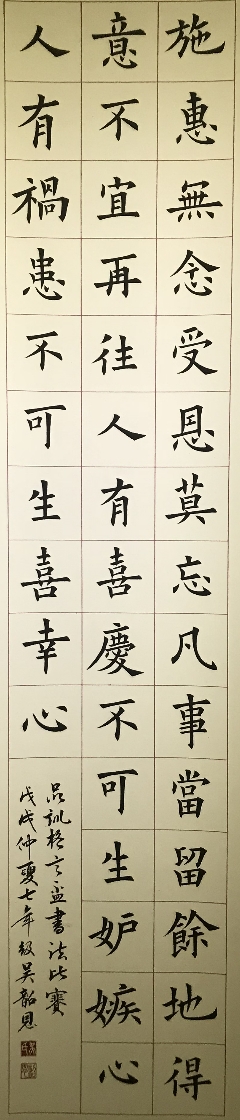 施惠無念受恩莫忘凡事當留餘地得
意不宜再往人有喜慶不可生妒嫉心
人有禍患不可生喜幸心
品訓格言盃書法比賽
戊戌仲夏七年級吳韶恩